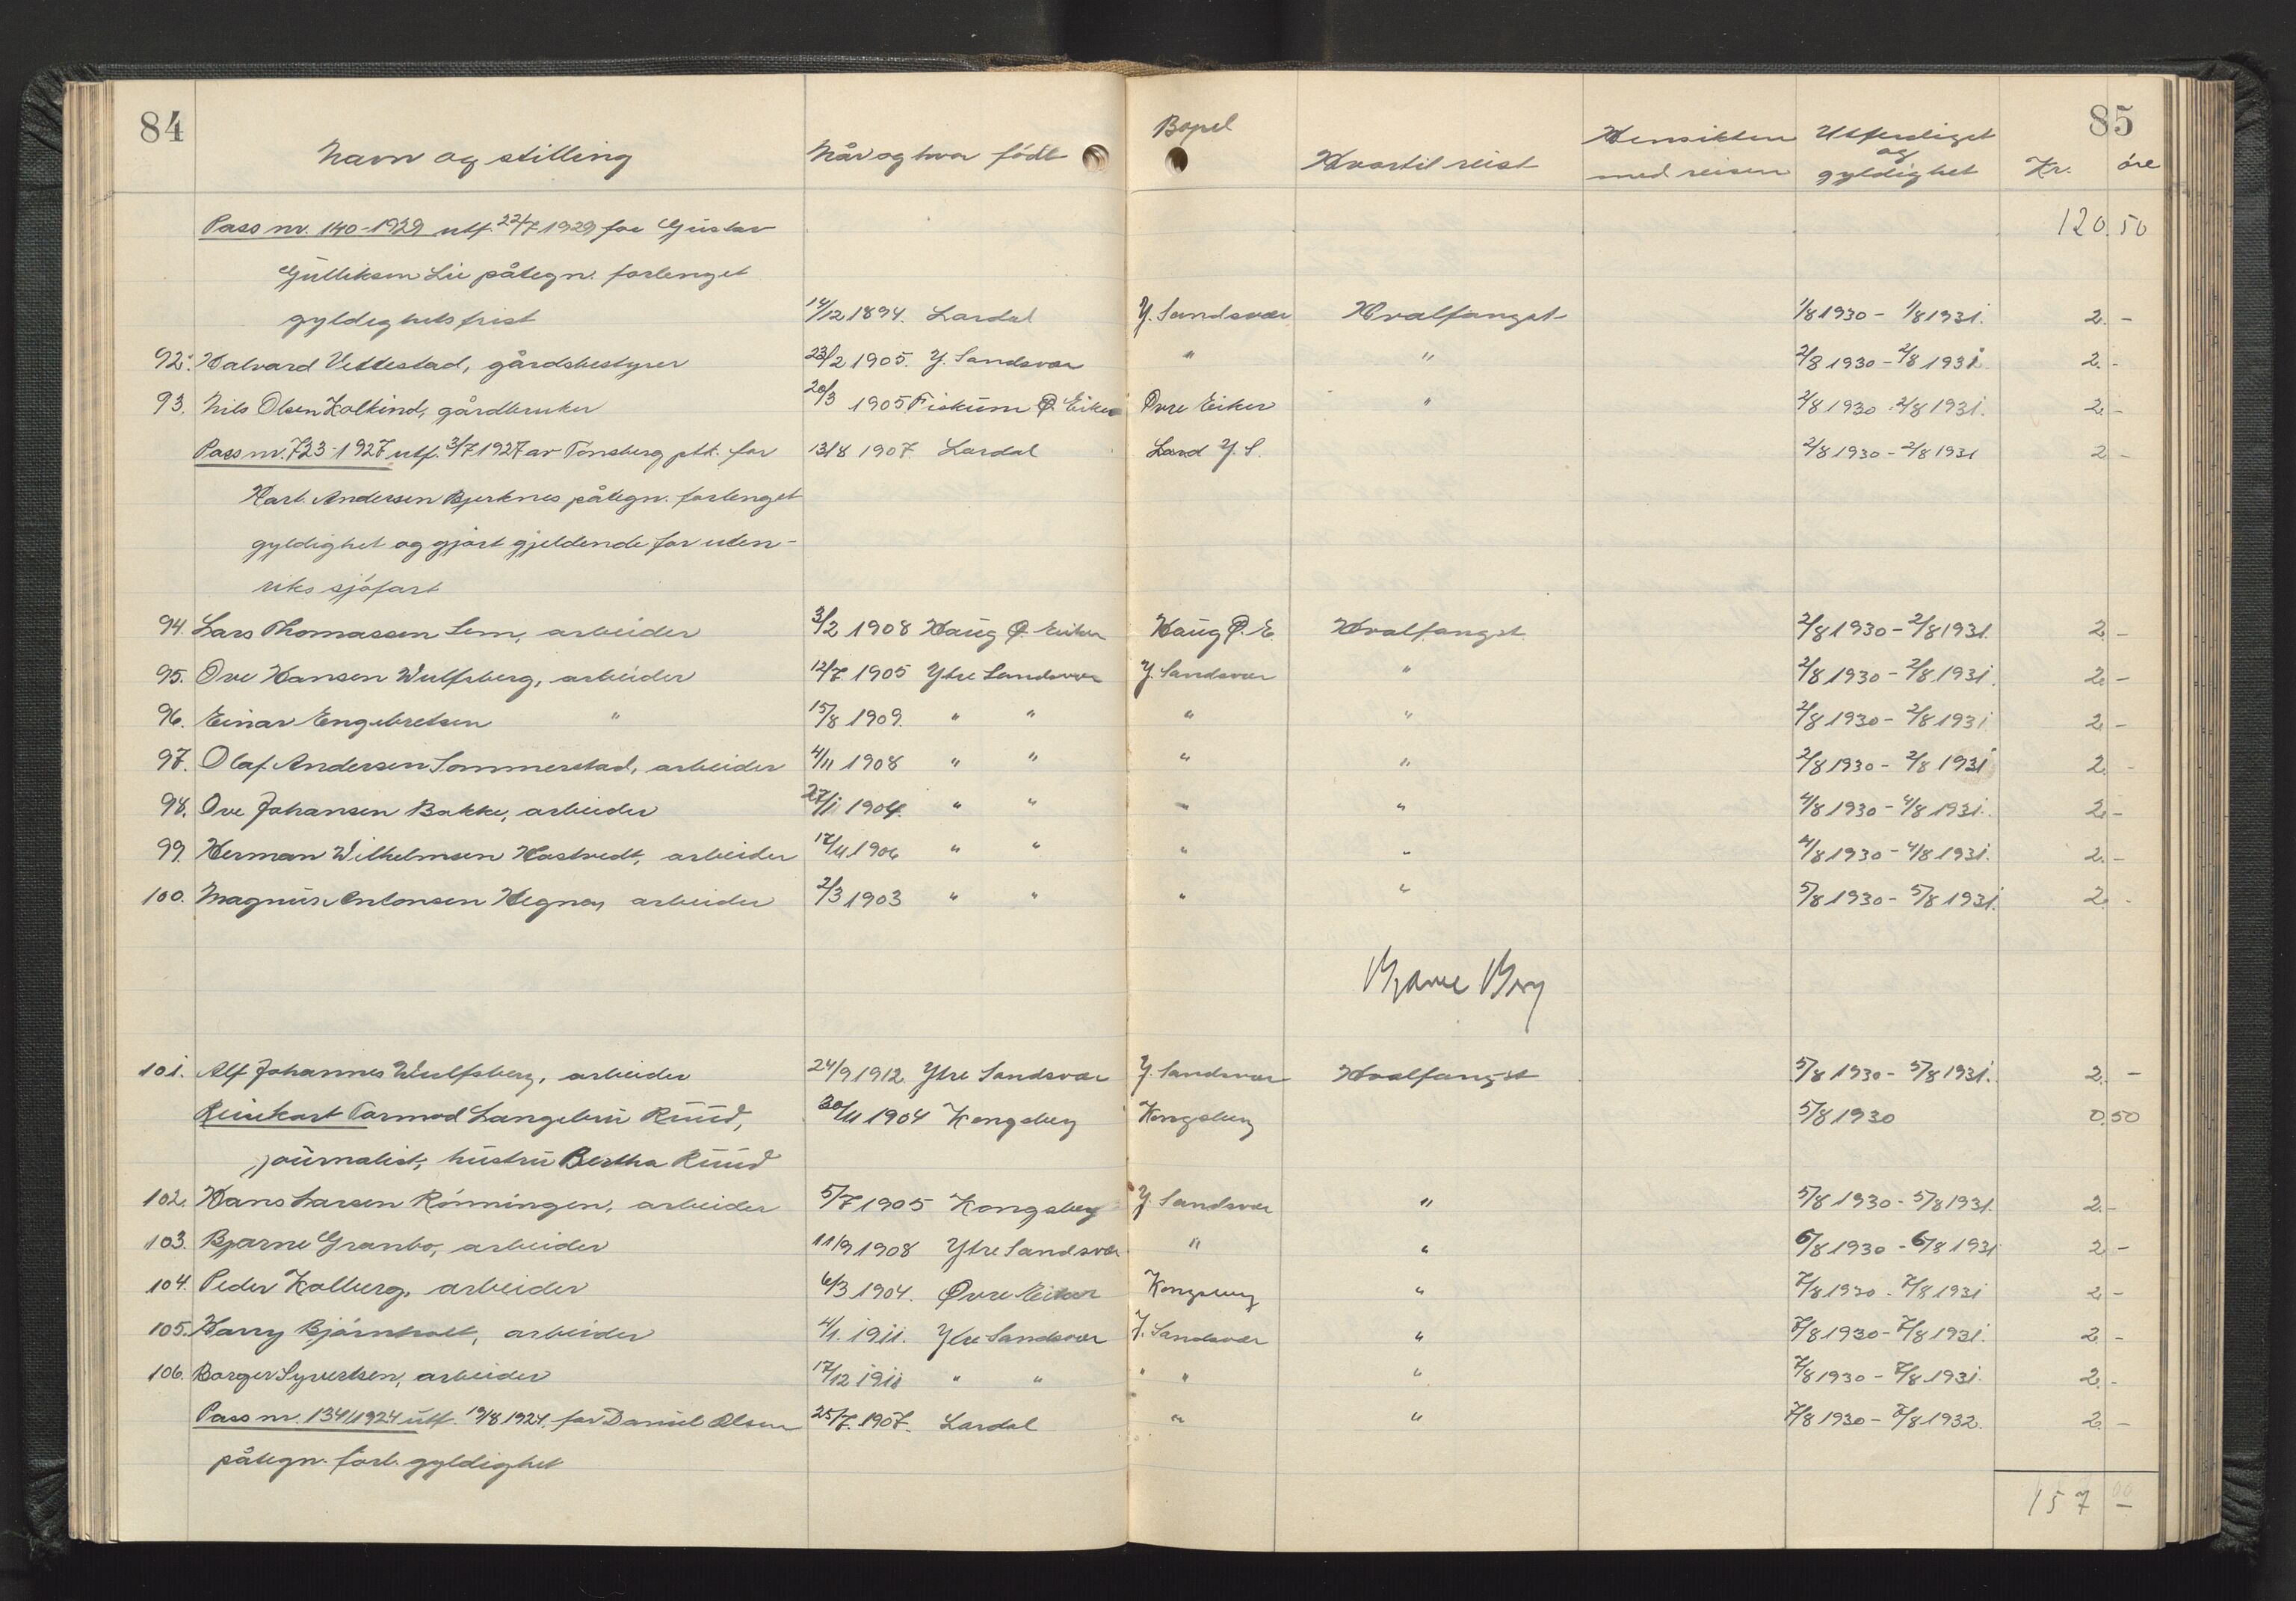 84
85
Navn og stilling Når og hvor født Bopel Hvortil reist Hensikten med reisen Utferdiget og gyldighet Kr. öre
Pass nr. 140-1929 utf. 22/7 1929 for Gustav 120.50
Gulliksen Lie påtegn. forlenget
gyldighetsfrist 14/12 1894. Lardal Y. Sandsvær Hvalfangst 1/8 1930 - 1/8 1931. 2. -
92. Halvard Vettestad, gårdsbestyrer 23/2 1905. Y. Sandsvær " " 2/8 1930 - 2/8 1931. 2. -
93. Nils Olsen Kolkind, gårdbruker 20/3 1905 Fiskum Ø. Eiker Øvre Eiker " 2/8 1930 - 2/8 1931. 2. -
Pass nr. 723-1927 utf. 3/7 1927 av Tønsberg pk. for 13/8 1907. Lardal Y. S. 2/8 1930 - 2/8 1931 2 -
Andersen Bjerknes påtegn. forlenget
gyldighet og gjort gjeldende for uten-
riks sjöfart
94. Lars Thomassen Lem, arbeider 3/2 1908 Haug Ø. Eiker Haug Ø. E. Hvalfangst 2/8 1930 - 2/8 1931. 2. -
95. Ove Hansen Wulfsberg, arbeider 12/7 1905 Ytre Sandsvær Y. Sandsvær " 2/8 1930 - 2/8 1931. 2. -
96. Einar Engebretsen " 15/8 1909. " " " " 2/8 1930 - 2/8 1931 2. -
97. Olaf Andersen Sommerstad, arbeider 4/11 1908 " " " " 2/8 1930 - 2/8 1931 2. -
98. Ove Johansen Bakke, arbeider 27/1 1904. " " " " 4/8 1930 - 4/8 1931. 2. -
99. Herman Wilhelmsen Hostvedt, arbeider 17/11 1906 " " " " 4/8 1930 - 4/8 1931. 2. -
100. Magnus Antonsen Hegna, arbeider 2/3 1903 " " " " 5/8 1930 - 5/8 1931. 2. -
Bjarne Berg
101. Alf Johannes Wulfsberg, arbeider 24/9 1912. Ytre Sandsvær Y. Sandsvær Hvalfangst 5/8 1930 - 5/8 1931. 2. -
Reisekort Tormod Langebru Ruud, 30/11 1904 Kongsberg Kongsberg 5/8 1930 0.50
journalist, hustru Bertha Ruud
102. Hans Larsen Rönningen, arbeider 5/7 1905 Kongsberg Y. Sandsvær " 5/8 1930 - 5/8 1931. 2. -
103. Bjarne Granbo, arbeider 11/9 1908 Ytre Sandsvær " " 6/8 1930 - 6/8 1931 2 -
104. Peder Kolberg, arbeider 6/3 1904. Øvre Eiker Kongsberg " 7/8 1930 - 7/8 1931 2 -
105. Harry Björnholt, arbeider 4/1. 1911. Ytre Sandsvær Y. Sandsvær " 7/8 1930 - 7/8 1931. 2. -
106. Borger Syvertsen, arbeider 17/12 1911 " " " " " 7/8 1930 - 7/8 1931. 2. -
Pass nr. 134/1924 utf. 19/8 1924. for Daniel Olsen 25/7. 1907. Lardal " " 7/8 1930 - 7/8 1932. 2. -
påtegn. forl. gyldighet
157 -